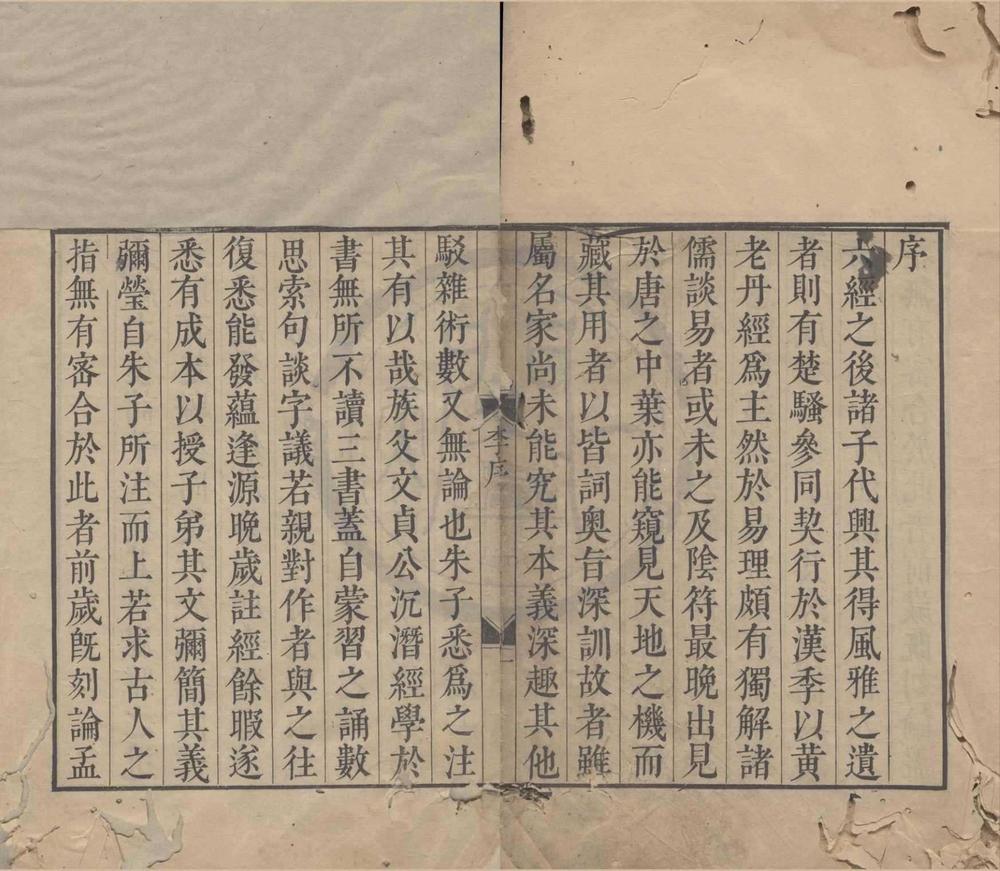 序
六經之後諸子代興其得風雅之遺
者則有楚騷參同契行於漢季以黄
老丹經爲主然於易理頗有獨解諸
儒談易者或未之及陰符最晚出見
於唐之中葉亦能窺見天地之機而
藏其用者以皆詞奥旨深訓故者雖
屬名家尚未能究其本義深趣其他
李序
一
駁雜術數又無論也朱子悉爲之注
其有以哉族父文貞公沉潛經學於
書無所不讀三書蓋自蒙習之誦數
思索句談字議若親對作者與之往
復悉能發蘊逢源晚歲註經餘暇遂
悉有成本以授子弟其文彌簡其義
彌瑩自朱子所注而上若求古人之
指無有密合於此者前歲旣刻論孟